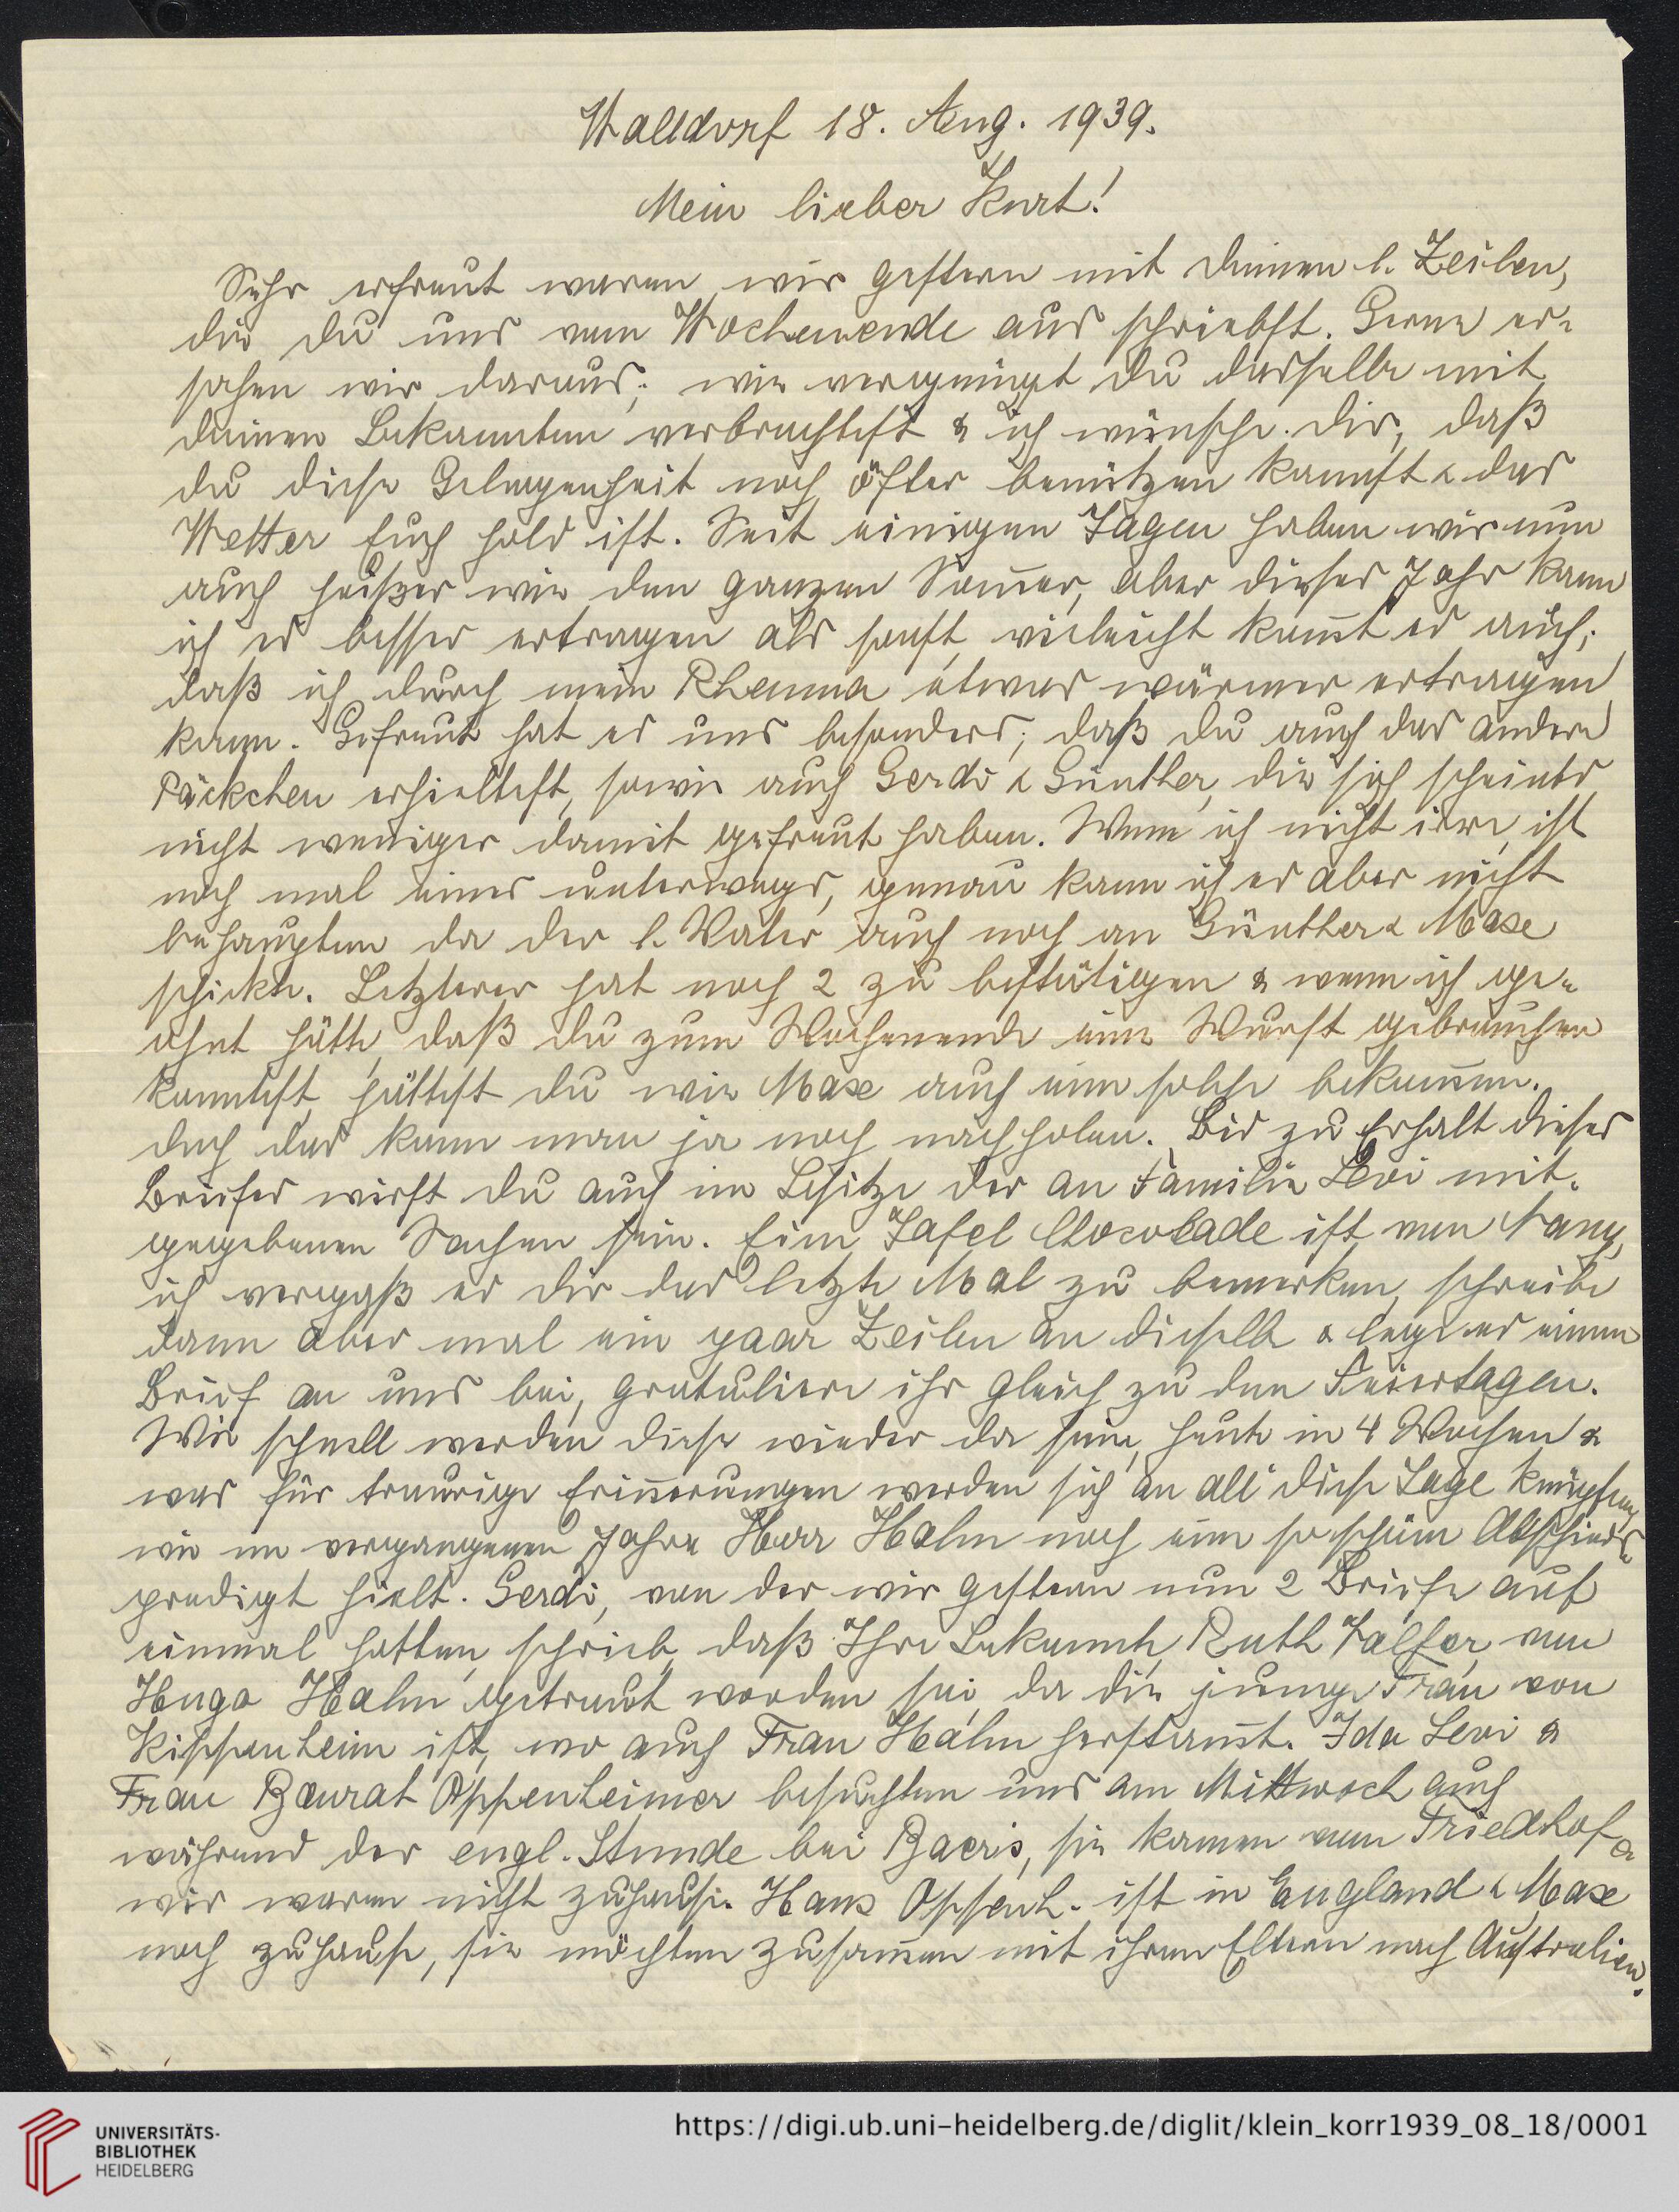 Walldorf 18. Aug. 1939.
Mein lieber Kurt!
Sehr erfreut waren wir gestern mit deinen l. Zeilen,
die du uns vom Wochenende aus schriebst. Gerne er-
sahen wir daraus, wie vergnügt du dasselbe mit
deinen Bekannten verbrachtest & ich wünsche dir, daß
du diese Gelegenheit noch öfter benützen kannst & das
Wetter Euch hold ist. Seit einigen Tagen haben wir nun
auch heißer wie den ganzen Som̄er, aber dieses Jahr kann
ich es besser ertragen als sonst, vieleicht kom̄t es auch,
daß ich durch mein Rheuma etwas wärmer ertragen
kann. Gefreut hat es uns besonders, daß du auch das andere
Päckchen erhieltest, sowie auch Gerdi & Günther, die sich scheints
nicht weniger damit gefreut haben. Wenn ich nicht irre, ist
noch mal eines unterwegs, genau kann ich es aber nicht
behaupten da der l. Vater auch noch an Günther & Max
schickte. Letzterer hat noch 2 zu bestätigen & wenn ich ge-
ahnt hätte, daß du zum Wochenende eine Wurst gebrauchen
konntest, hättest du wie Max auch eine solche bekom̄en.
doch das kann man ja noch nachholen. Bis zu Erhalt dieses
Briefes wirst du auch im Besitze der an Familie Levi mit-
gegebenen Sachen sein. Eine Tafel Chocolade ist von Nany,
ich vergaß es dir das letzte Mal zu bemerken, schreibe
dann aber mal ein paar Zeilen an dieselbe & lege es einem
Brief an uns bei, gratuliere ihr gleich zu den Feiertagen.
Wie schnell werden diese wieder da sein, heute in 4 Wochen &
was für traurige Erin̄erungen werden sich an all diese Tage knüpfen,
wie im vergangenen Jahre Herr Halm noch eine so schöne Abschieds-
predigt hielt. Gerdi, von der wir gestern nun 2 Briefe auf
einmal hatten, schrieb, daß Ihre Bekannte, Ruth, von
Hugo Halm getraut worden sei, da die junge Frau von
Kippenheim ist, wo auch Frau Halm herstam̄t. Ida Levi &
Frau Baurat Oppenheimer besuchten uns am Mittwoch auch
während der engl. Stunde bei Baers, sie kamen vom Friedhof &
wir waren nicht zuhause. Hans Oppenh. ist in England & Max
noch zuhause, sie möchten zusam̄en mit ihren Eltern nach Australien.
UNIVERSITÄTS-
BIBLIOTHEK
HEIDELBERG
https://digi.ub.uni-heidelberg.de/diglit/klein_korr1939_08_18/0001